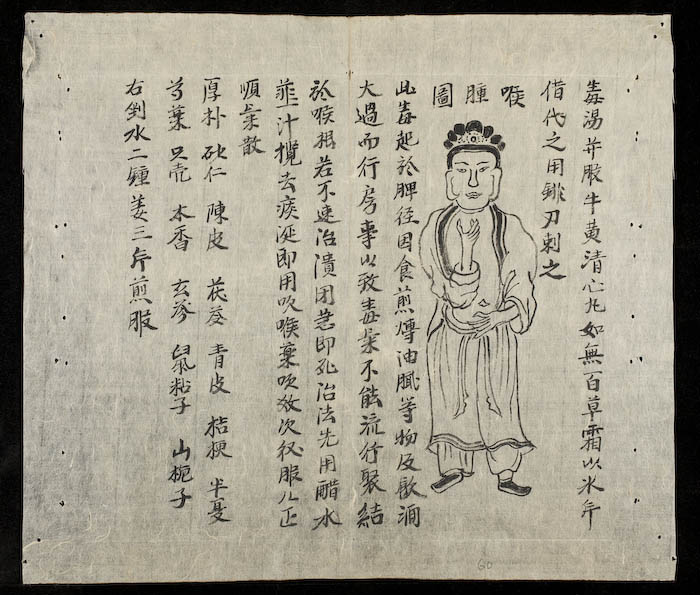 毒湯并服牛黃清心丸如無百草霜以氷片
借代之用刀刺之
喉腫圖
此毒起於脾径因食煎煿油膩等物及飲酒
大過而行房事以致毒氣不能流行聚結
於喉根若不速治潰閉急即死治法先用醋水
韮汁攪去痰涎即用吹喉藥吹效次服八正
順氣散
厚朴 砂仁 陳皮 茯苓 青皮 桔梗 半夏
只壳 木香 玄參 鼠粘子 山梔子
右剉水二鍾姜三片煎服
60